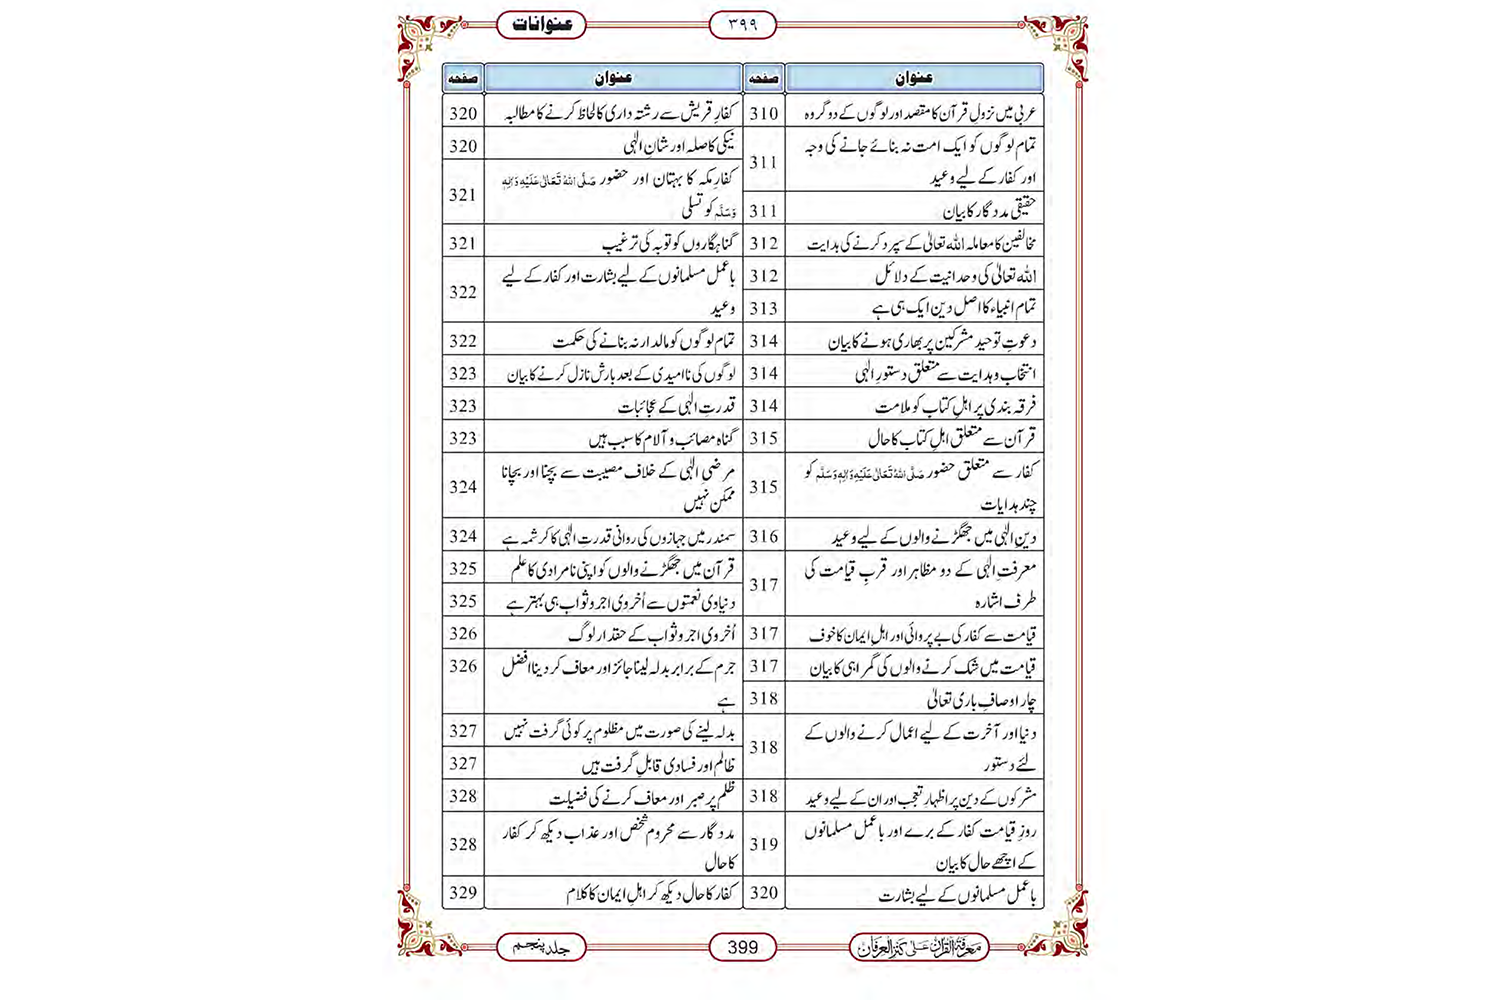 عنوانات
۳۹۹
عنوان صفحہ
عربی میں نزولِ قرآن کا مقصد اور لوگوں کے دو گروہ 310
تمام لوگوں کو ایک امت نہ بنائے جانے کی وجہ
اور کفار کے لیے وعید 311
حقیقی مددگار کا بیان 311
مخالفین کا معاملہ اللہ تعالیٰ کے سپرد کرنے کی ہدایت 312
اللہ تعالیٰ کی وحدانیت کے دلائل 312
تمام انبیاء کا اصل دین ایک ہی ہے 313
دعوتِ توحید مشرکین پر بھاری ہونے کا بیان 314
انتخاب و ہدایت سے متعلق دستورِ الٰہی 314
فرقہ بندی پر اہلِ کتاب کو ملامت 314
قرآن سے متعلق اہلِ کتاب کا حال 315
کفار سے متعلق حضور صَلَّی اللہُ تَعَالٰی عَلَیْہِ وَاٰلِہٖ وَسَلَّم کو
چند ہدایات 315
دینِ الٰہی میں جھگڑنے والوں کے لیے وعید 316
معرفتِ الٰہی کے دو مظاہر اور قربِ قیامت کی
طرف اشارہ 317
قیامت سے کفار کی بے پروائی اور اہلِ ایمان کا خوف 317
قیامت میں شک کرنے والوں کی گمراہی کا بیان 317
چار اوصافِ باری تعالیٰ 318
دنیا اور آخرت کے لیے اعمال کرنے والوں کے
لئے دستور 318
مشرکوں کے دین پر اظہارِ تعجب اور ان کے لیے وعید 318
روزِ قیامت کفار کے برے اور باعمل مسلمانوں
کے اچھے حال کا بیان 319
باعمل مسلمانوں کے لیے بشارت 320
عنوان صفحہ
کفارِ قریش سے رشتہ داری کا لحاظ کرنے کا مطالبہ 320
نیکی کا صلہ اور شانِ الٰہی 320
کفارِ مکہ کا بہتان اور حضور صَلَّی اللہُ تَعَالٰی عَلَیْہِ وَاٰلِہٖ
وَسَلَّم کو تسلی 321
گناہگاروں کو توبہ کی ترغیب 321
باعمل مسلمانوں کے لیے بشارت اور کفار کے لیے
وعید 322
تمام لوگوں کو مالدار نہ بنانے کی حکمت 322
لوگوں کی ناامیدی کے بعد بارش نازل کرنے کا بیان 323
قدرتِ الٰہی کے عجائبات 323
گناہ مصائب و آلام کا سبب ہیں 323
مرضیِ الٰہی کے خلاف مصیبت سے بچنا اور بچانا
ممکن نہیں 324
سمندر میں جہازوں کی روانی قدرتِ الٰہی کا کرشمہ ہے 324
قرآن میں جھگڑنے والوں کو اپنی نامرادی کا علم 325
دنیاوی نعمتوں سے اُخروی اجر و ثواب ہی بہتر ہے 325
اُخروی اجر و ثواب کے حقدار لوگ 326
جرم کے برابر بدلہ لینا جائز اور معاف کر دینا افضل
ہے 326
بدلہ لینے کی صورت میں مظلوم پر کوئی گرفت نہیں 327
ظالم اور فسادی قابلِ گرفت ہیں 327
ظلم پر صبر اور معاف کرنے کی فضیلت 328
مددگار سے محروم شخص اور عذاب دیکھ کر کفار
کا حال 328
کفار کا حال دیکھ کر اہلِ ایمان کا کلام 329
معرفۃ القرآن علی کنز العرفان
399
جلد پنجم